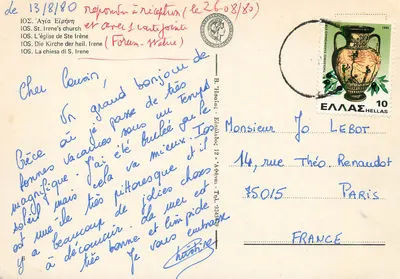 le 13/8/80
repondu à réception (le 26-08/80)
et avec 1 carte jointe
(Forum-Statue)
ΙΟΣ. Αγία Ειρήνη
IOS. St. Irene's church
IOS. L'église de Ste Irène
IOS. Die Kirche der heil. Irene
IOS. La chiesa di S. Irene
Cher Cousin,
Un grand bonjour de
Grèce où je passe de très
bonnes vacances sous un temps
magnifique. J'ai été brulée par le
soleil mais cela va mieux. Ios
est une île très pittoresque et il
y a beaucoup de jolies choses
à découvrir. La mer est
très bonne et limpide
Je vous embrasse
ΕΛΛΑΣ 10
HELLAS
Monsieur Jo LEBOT
14, rue Théo. Renaudot
75015 PARIS
FRANCE